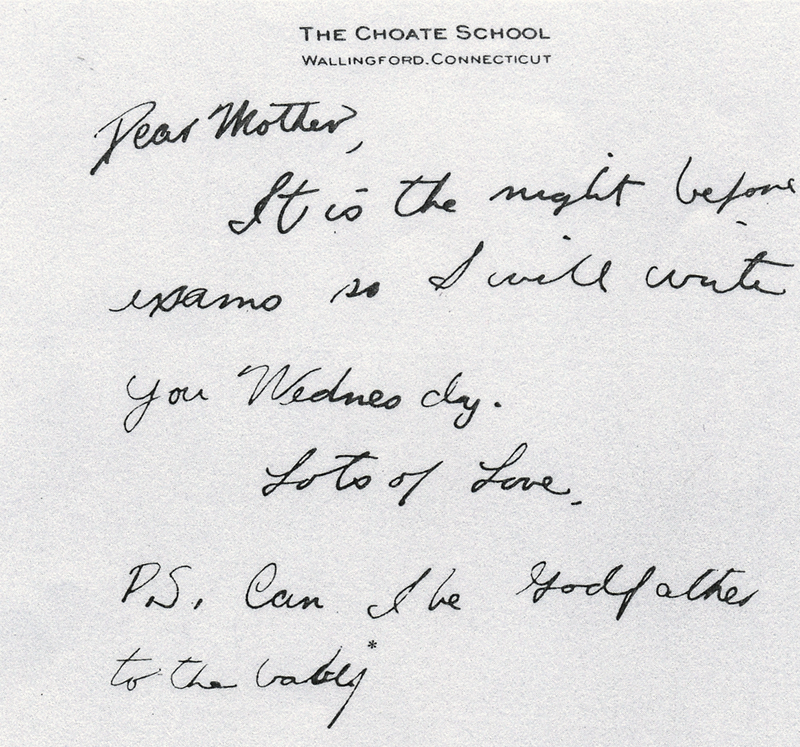 THE CHOATE SCHOOL
WALLINGFORD.CONNECTICUT
Dear Mother,
It is the night before
exams so I will write
you Wednesday.
Lots of Love,
P.S. Can I be Godfather
to the baby*